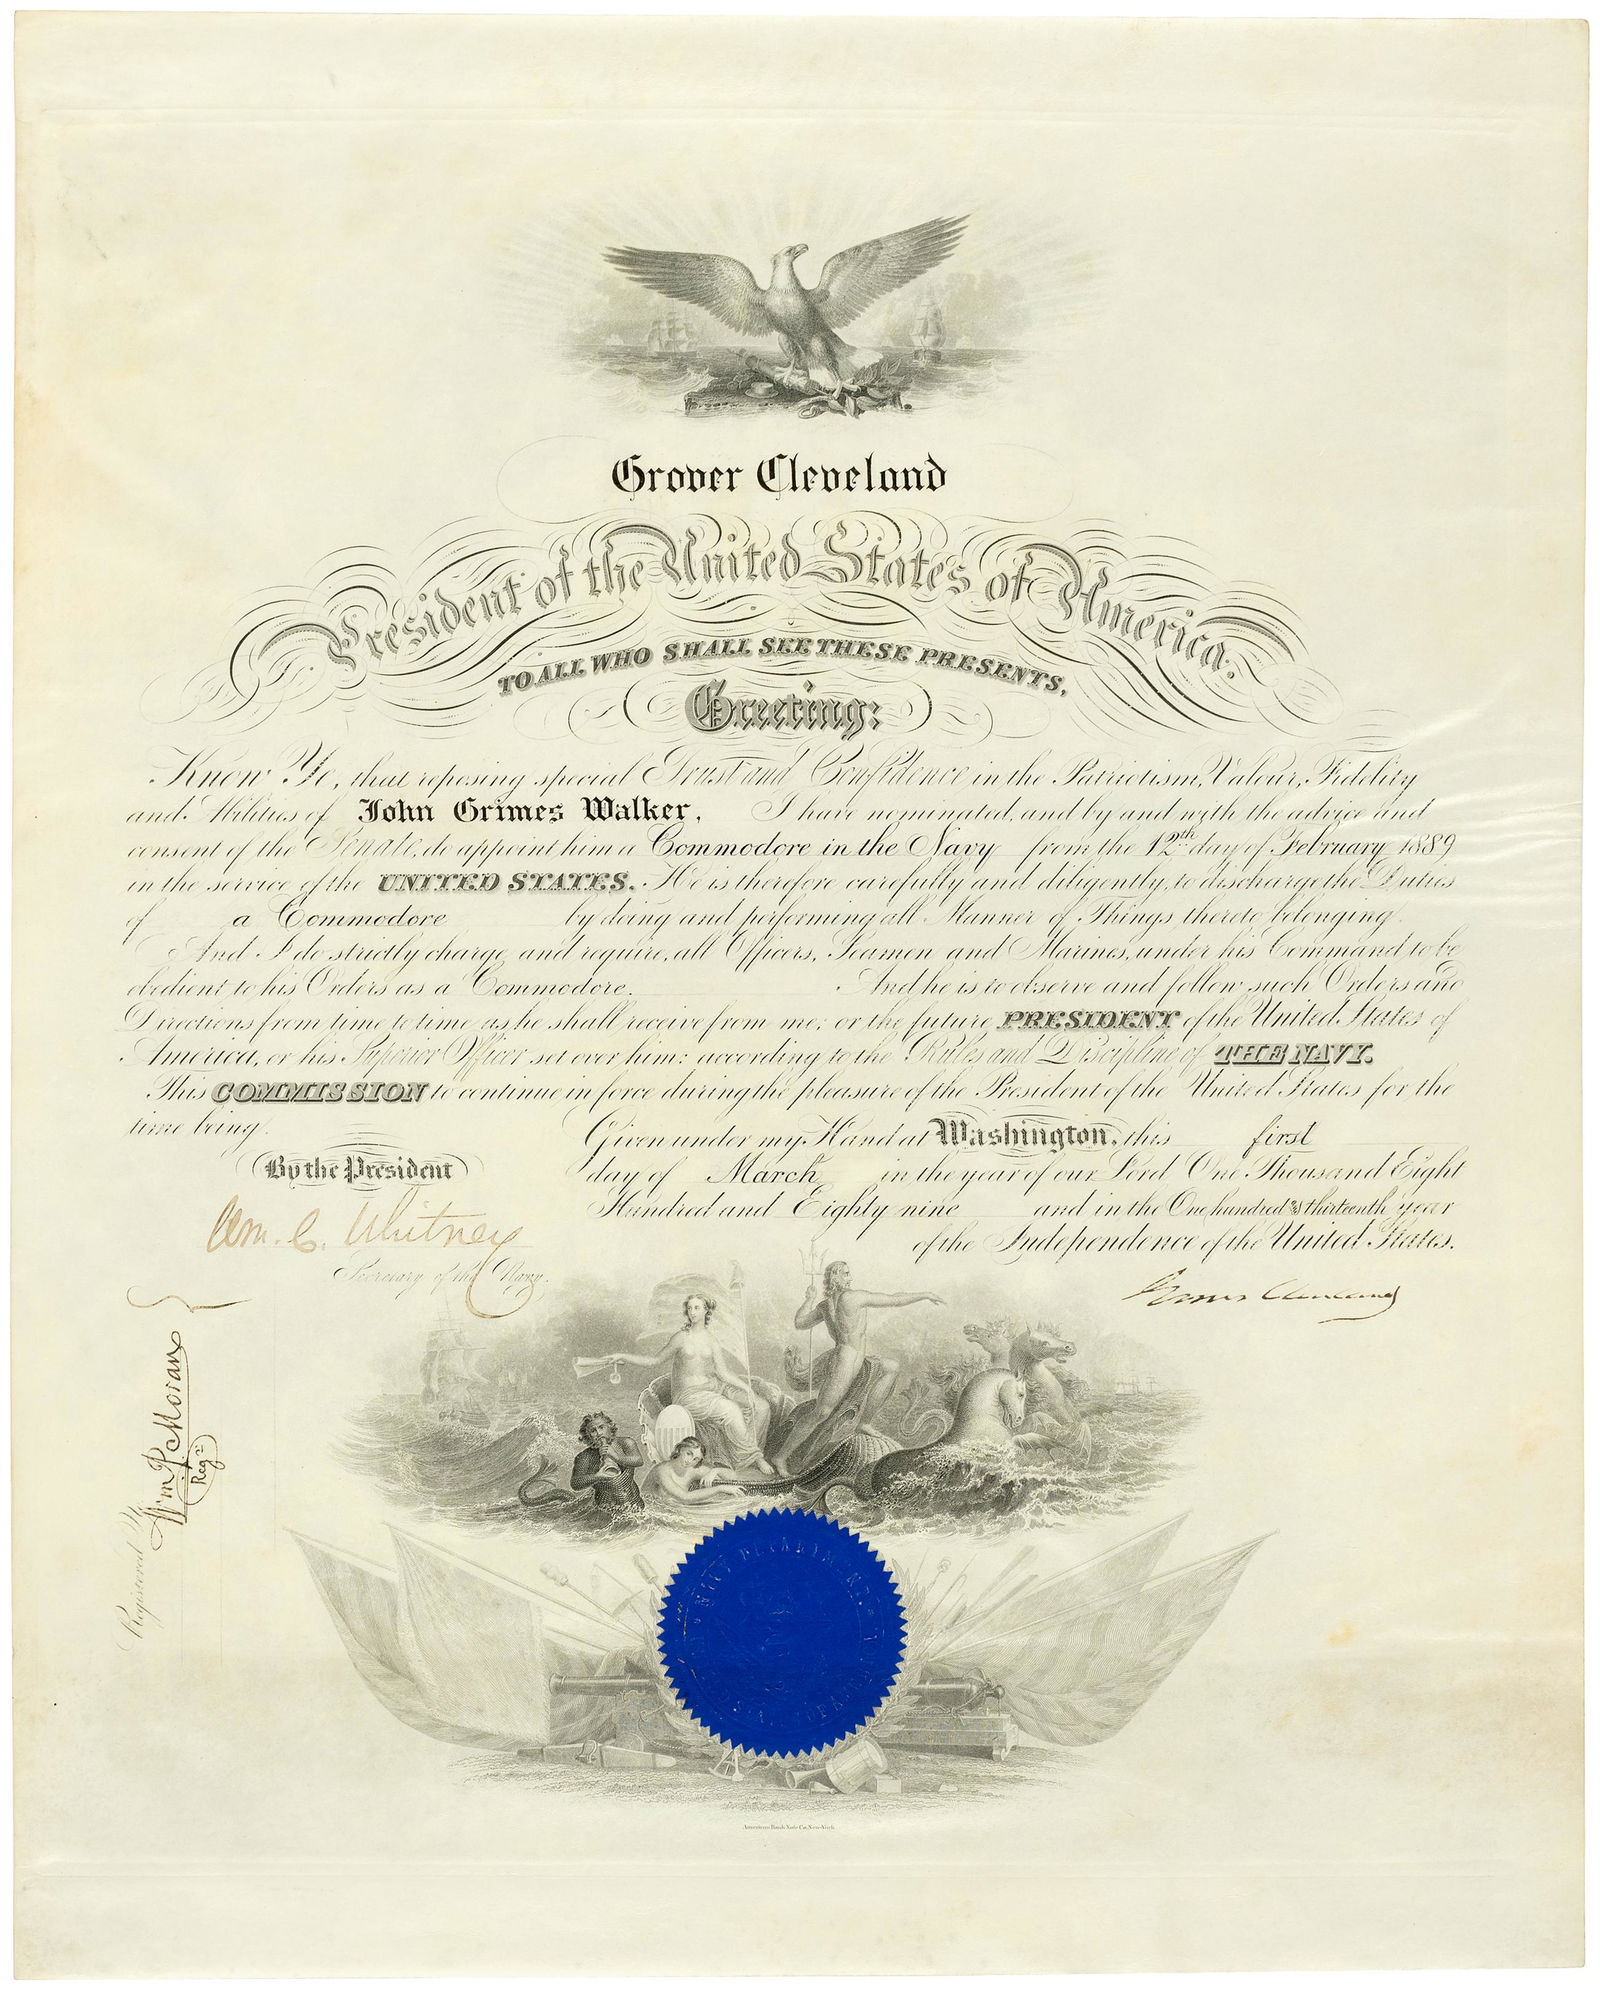 Grover Cleveland
President of the United States of America.
TO ALL WHO SHALL SEE THESE PRESENTS,
Greeting:
Know Ye, that reposing special Trust and Confidence in the Patriotism, Valour, Fidelity
and Abilities of John Grimes Walker, I have nominated, and by and with the advice and
consent of the Senate, do appoint him a Commodore in the Navy from the 12th day of February 1889
in the service of the UNITED STATES. He is therefore carefully and diligently, to discharge the Duties
of a Commodore by doing and performing all Manner of Things thereto belonging.
And I do strictly charge, and require, all Officers, Seamen and Marines, under his Command to be
obedient to his Orders as a Commodore. And he is to observe and follow such Orders and
Directions from time to time as he shall receive from me; or the future PRESIDENT of the United States of
America, or his Superior Officer set over him: according to the Rules and Discipline of THE NAVY.
This COMMISSION to continue in force during the pleasure of the President of the United States for the
time being.
Given under my Hand at Washington, this first
day of March in the year of our Lord One Thousand Eight
Hundred and Eighty nine and in the One hundred & thirteenth year
of the Independence of the United States.
By the President
Wm. C. Whitney
Secretary of the Navy.
Grover Cleveland
Registered
Wm P. Moran
Regr
American Bank Note Co. New-York